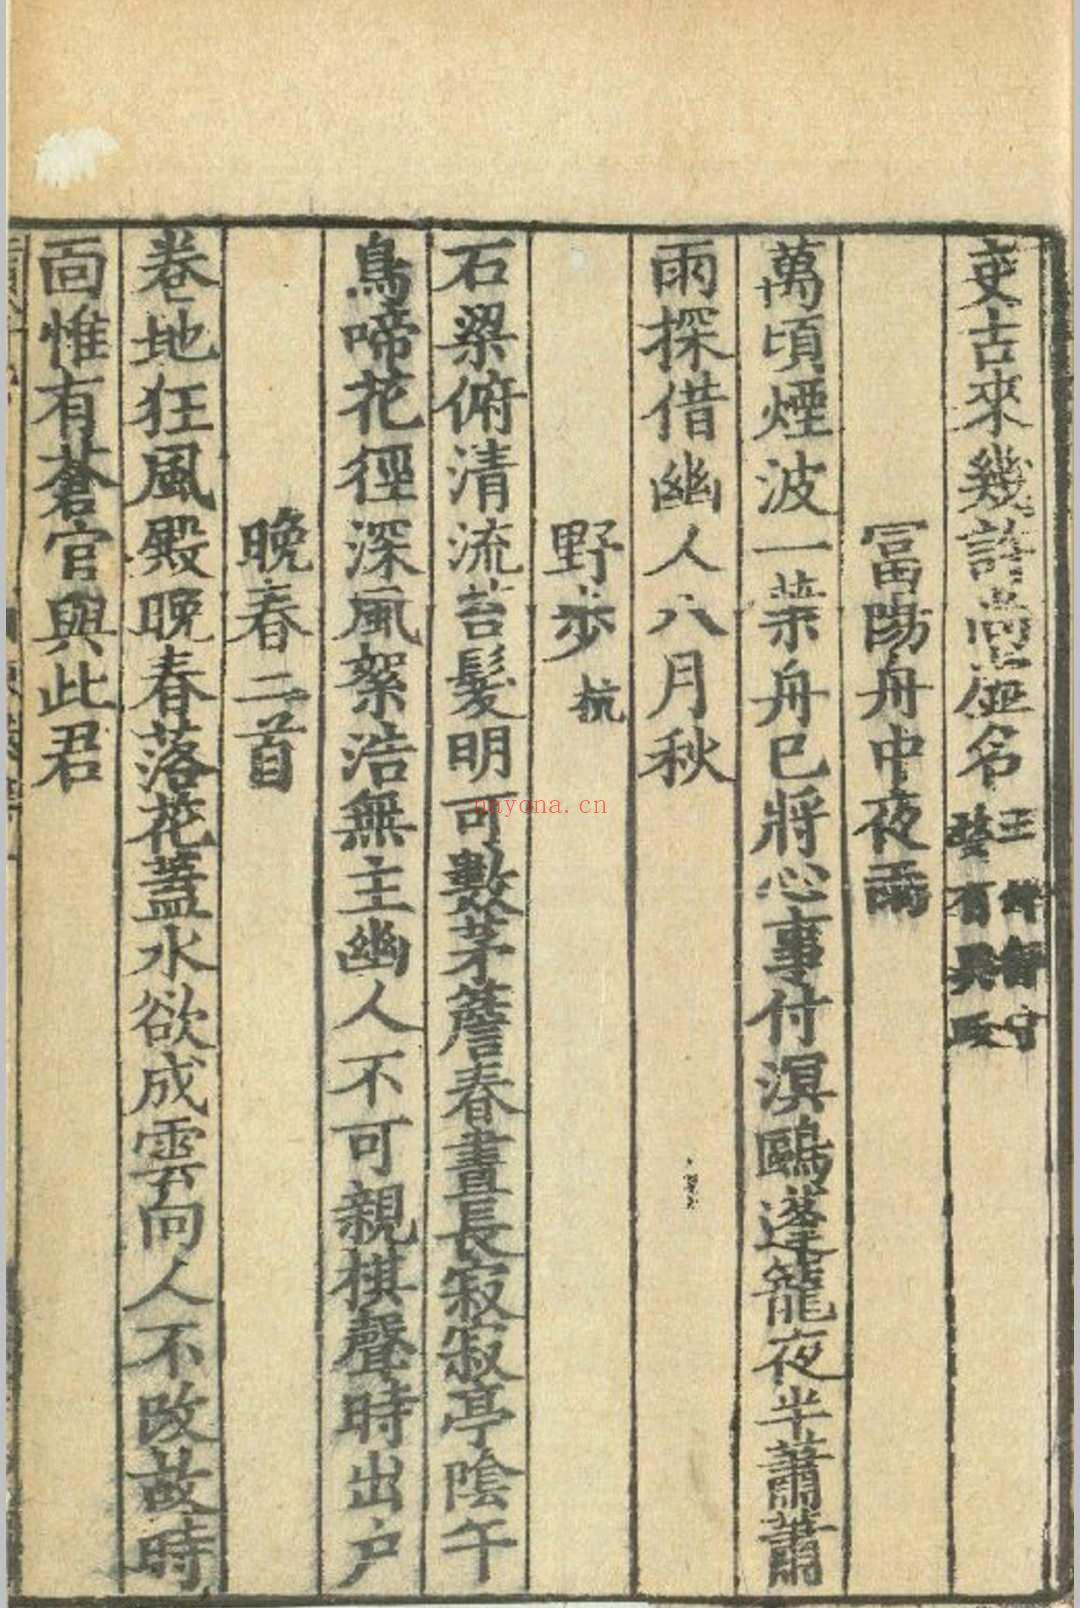 吏古來幾許尚虛名
冨陽舟中夜雨
萬頃煙波一葉舟已將心事付溟鷗蓬籠夜半蕭蕭
雨探借幽人八月秋
野步杭
石梁俯清流苔髮明可數茅簷春晝長寂寂亭陰午
鳥啼花徑深風絮浩無主幽人不可親棋聲時出戶
晚春二首
卷地狂風殿晚春落花蓋水欲成雲向人不改故時
面惟有蒼官與此君
nayona.cn